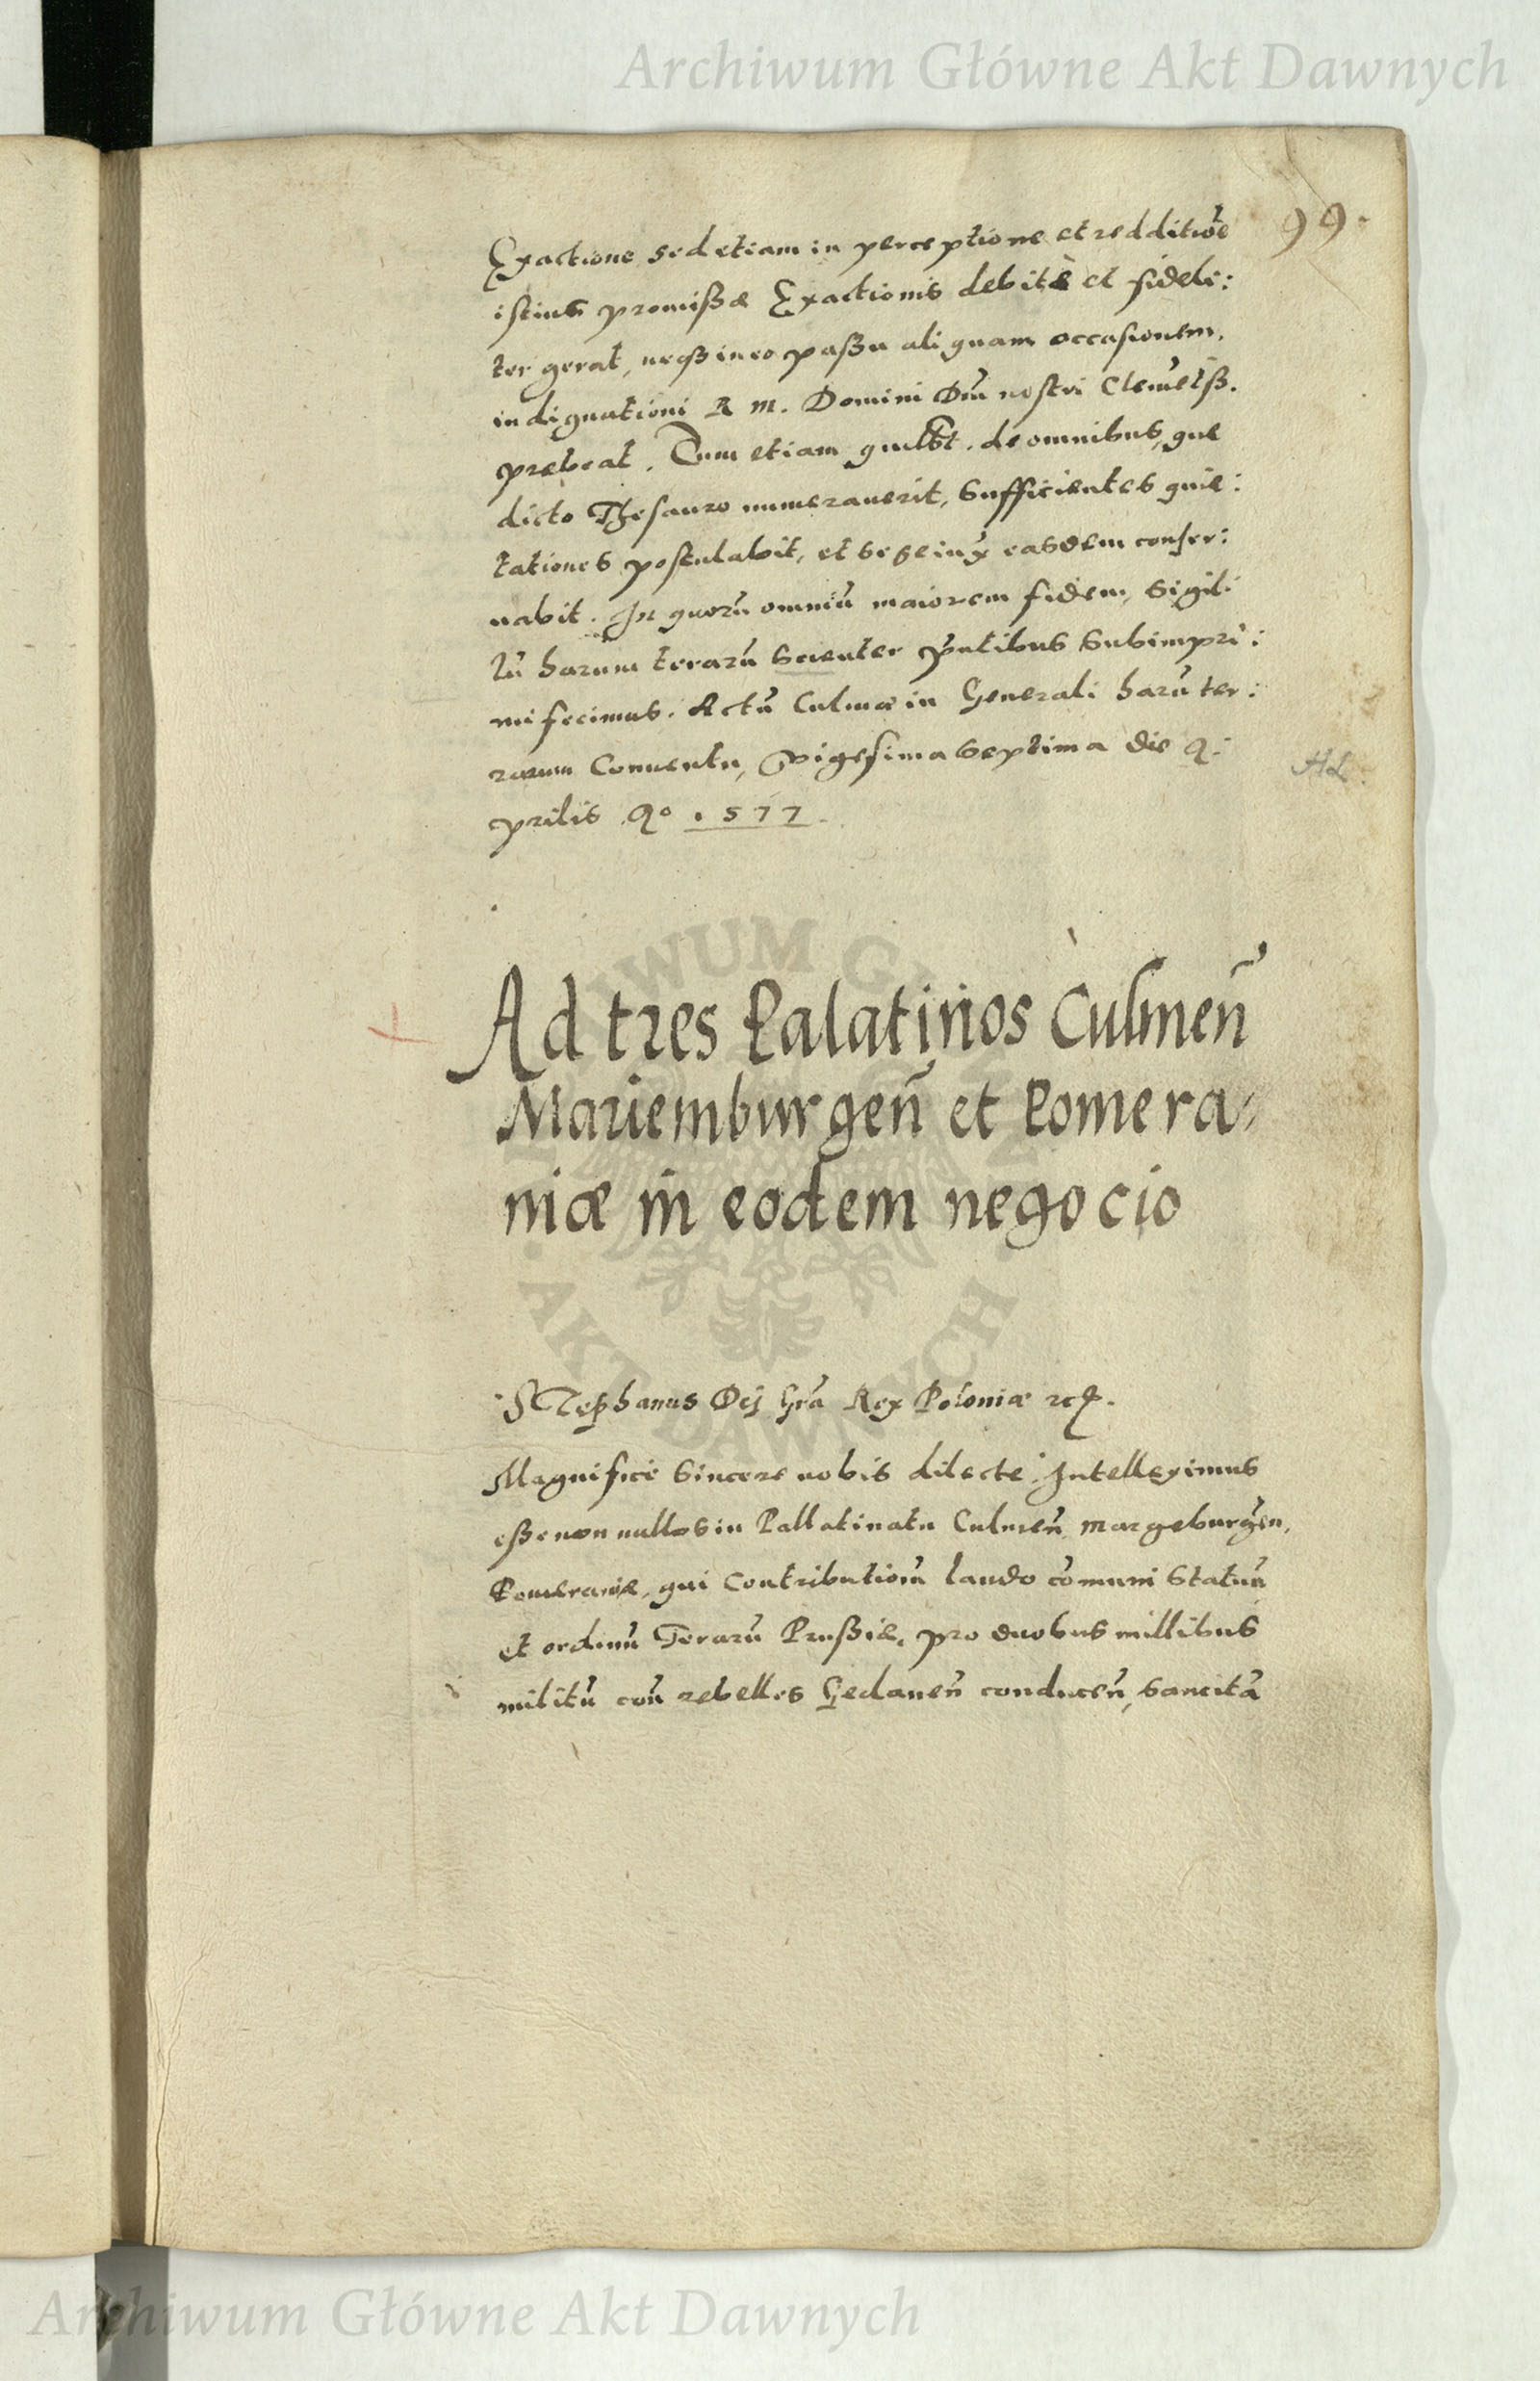 Archiwum Główne Akt Dawnych
99.
Exactione sed etiam in perceptione et redditiōe
istius promißæ Exactionis debitè et fideli:
ter gerat, neqß in eo paßu aliquam occasionem,
indignationi R M. Domini Dnī nostri Clemētß.
prebeat. Tum etiam quilbt. de omnibus, que
dicto Thesauro numeraverit, sufficientes quie:
tationes postulabit, et sese iux̄ easdem conser:
uabit. In quorū omniū maiorem fidem, sigil:
lū harum terarū scienter pn̄tibus subimpri:
mi fecimus. Actū Culmæ in Generali harū ter:
rarum Conuentu, Vigesima Septima die A:
prilis Aº .577.
AL
Ad tres Palatinos Culmeñ
Mariemburgeñ et Pomera-
niæ in eodem negocio
Stephanus Dei Grā Rex Poloniæ etc.
Magnifice sincere nobis dilecte. Intelleximus
eße non nullos in Pallatinatu Culmeñ, Margeburgeñ,
Pomeraniæ, qui Contributionē laudo cōmuni statuū
et ordinū Terarū Prußiæ, pro duobus millibus
militū con̄ rebelles Gedaneñ conduceñ, sancitā
ARCHIWUM GŁÓWNE
AKT DAWNYCH
Archiwum Główne Akt Dawnych